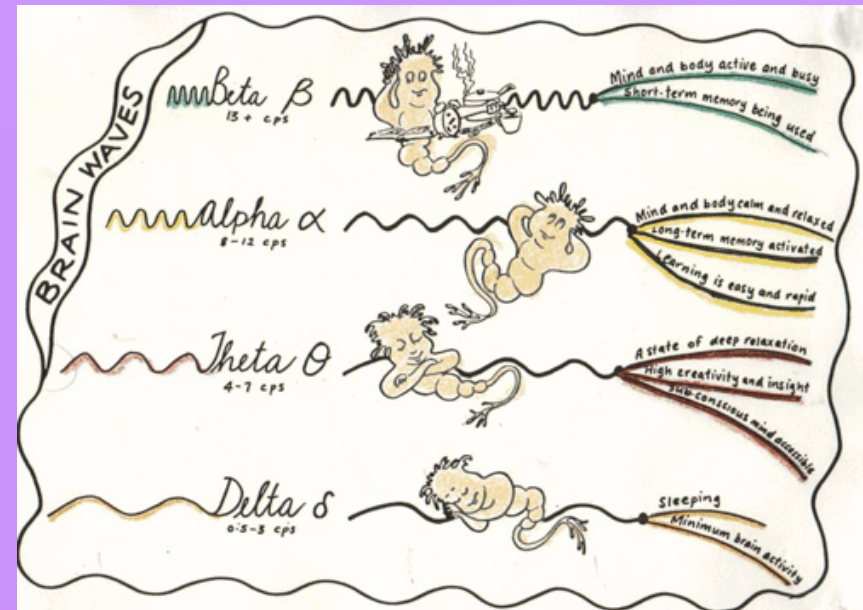 BRAIN WAVES
Beta β
13+ cps
Mind and body active and busy
Short-term memory being used
Alpha α
8-12 cps
Mind and body calm and relaxed
Long-term memory activated
Learning is easy and rapid
Theta θ
4-7 cps
A state of deep relaxation
High creativity and insight
Sub-conscious mind accessible
Delta δ
0.5-3 cps
Sleeping
Minimum brain activity